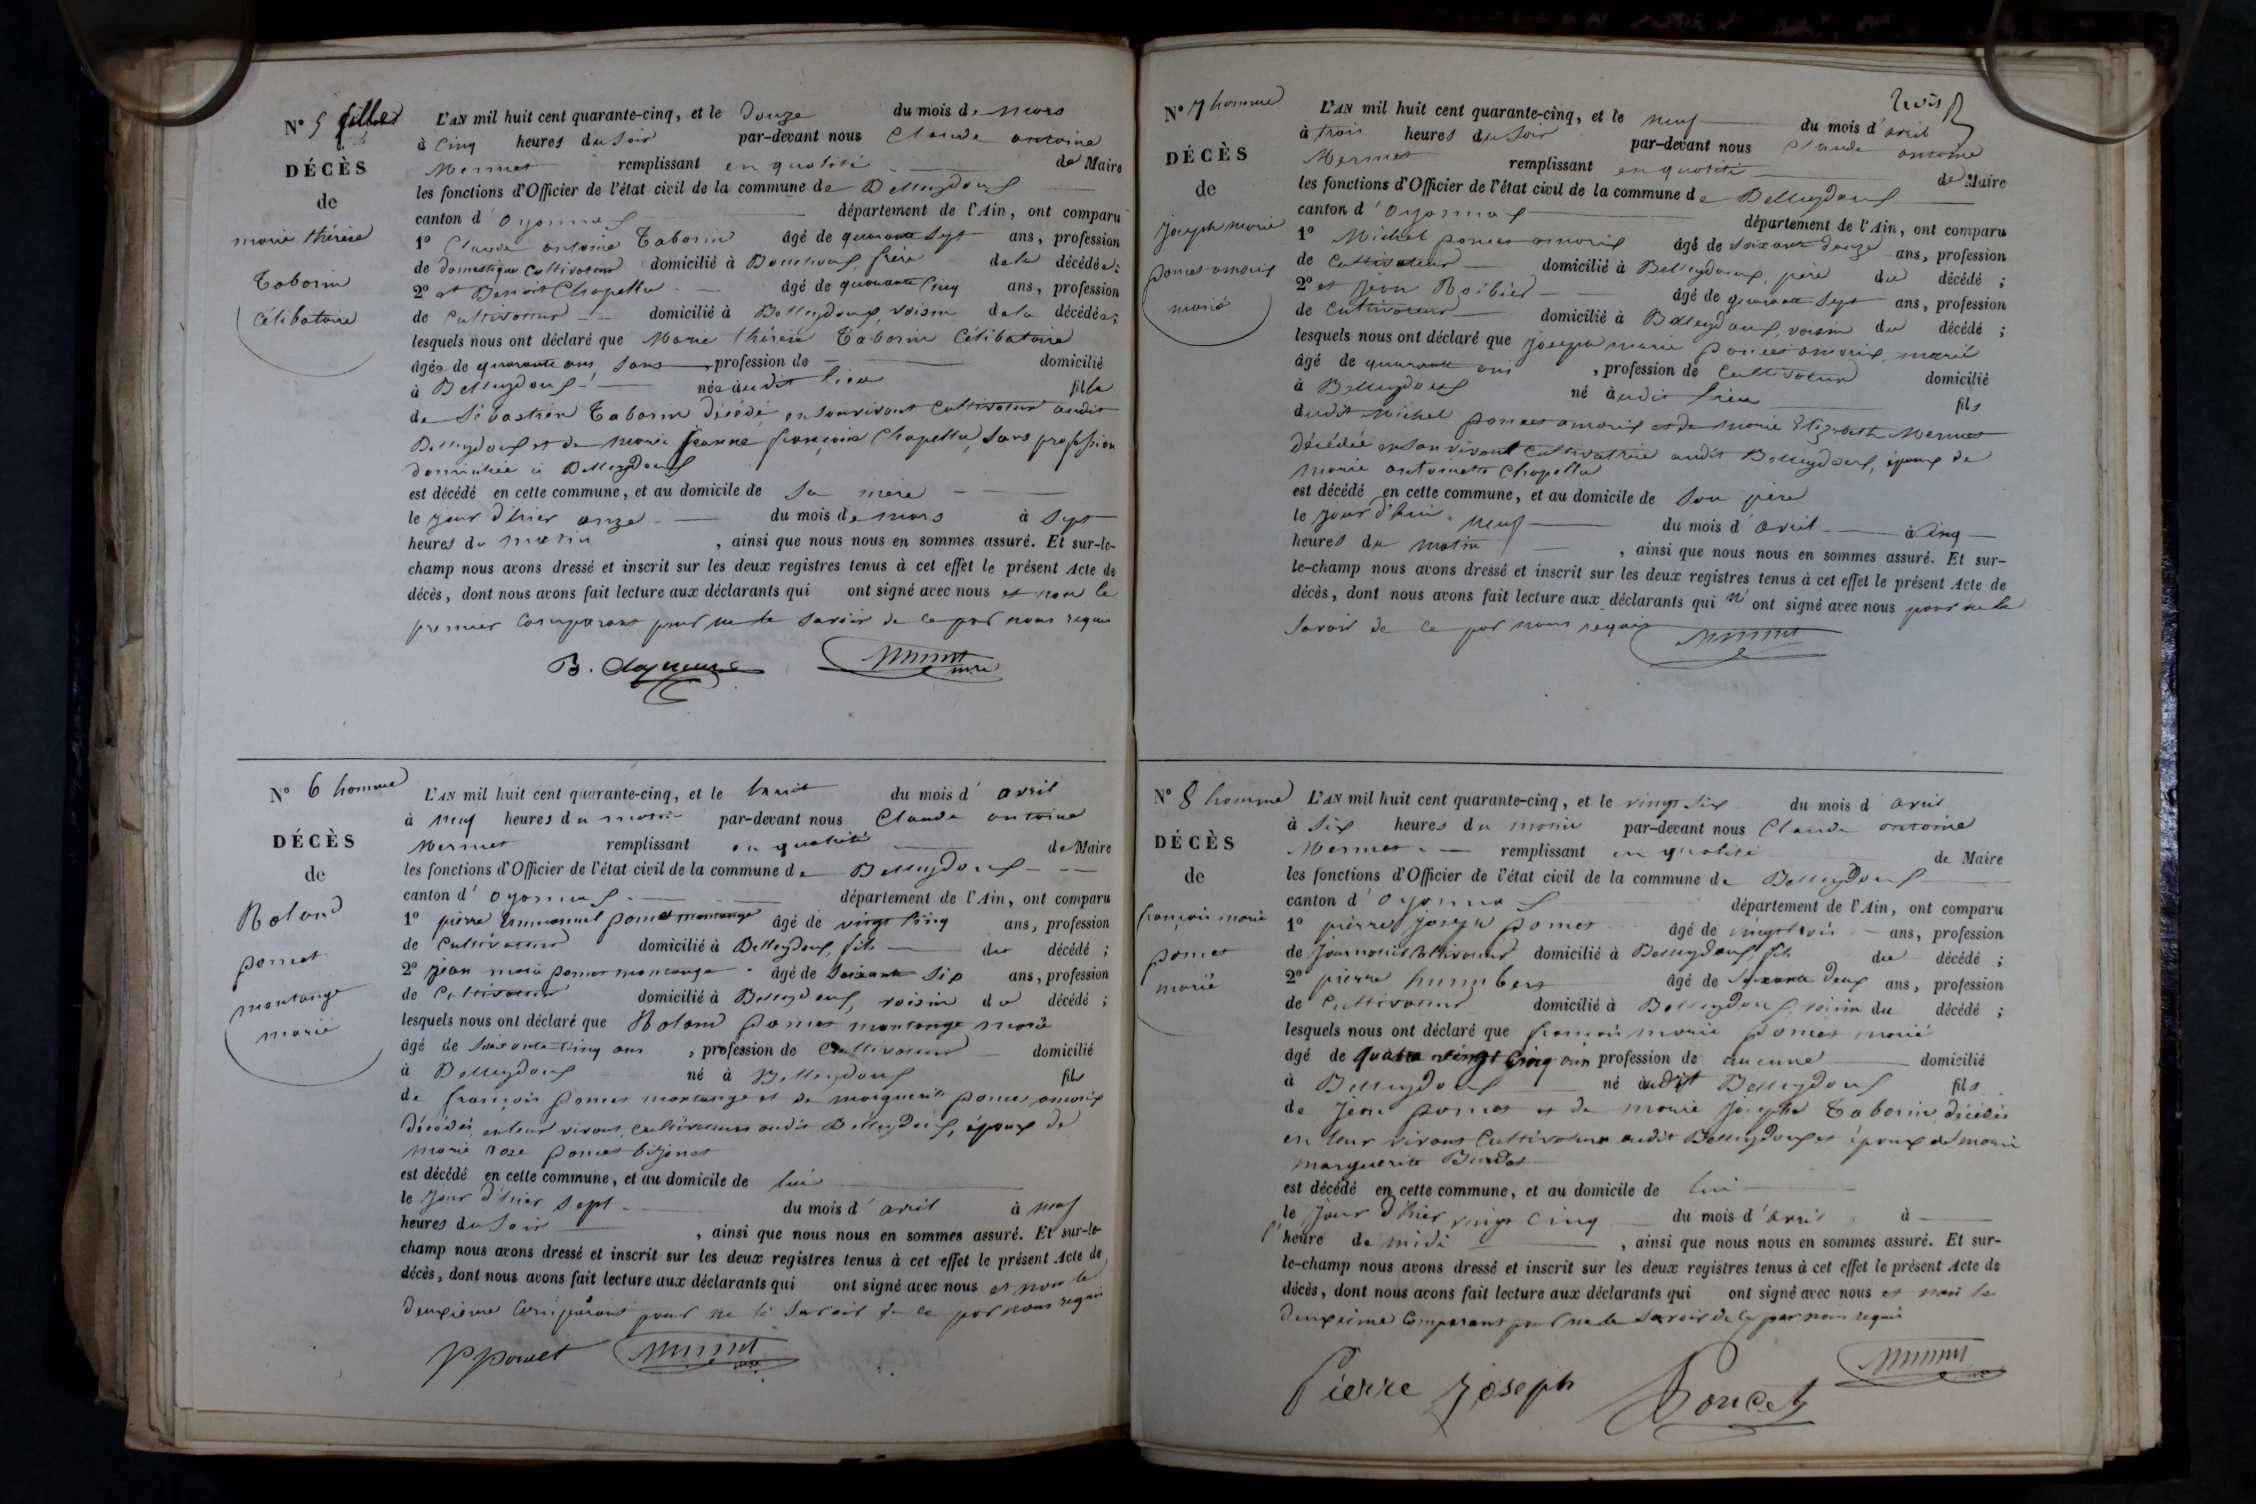 N° 5 fille
DÉCÈS
de
marie thérèse
Taborin
célibataire
L'AN mil huit cent quarante-cinq, et le douze du mois de mars
à cinq heures du soir par-devant nous Claude antoine
Mermet remplissant en qualité de Maire
les fonctions d'Officier de l'état civil de la commune de Belleydoux
canton d'oyonnax département de l'Ain, ont comparu
1° Claude antoine Taborin âgé de quarante sept ans, profession
de domestique cultivateur domicilié à Bouchoux, frère de la décédée;
2° et Benoit Chapellu âgé de quarante cinq ans, profession
de cultivateur domicilié à Belleydoux, voisin de la décédée;
lesquels nous ont déclaré que Marie thérèse Taborin Célibataire
âgée de quarante ans, sans profession de domicilié
à Belleydoux née audit lieu fille
de Sébastien Taborin décédé, en son vivant cultivateur audit
Belleydoux et de marie jeanne françoise Chapellu, sans profession
domiciliée à Belleydoux
est décédé en cette commune, et au domicile de sa mère
le jour d'hier onze du mois de mars à sept
heures du matin, ainsi que nous nous en sommes assuré. Et sur-le-
champ nous avons dressé et inscrit sur les deux registres tenus à cet effet le présent Acte de
décès, dont nous avons fait lecture aux déclarants qui ont signé avec nous et non le
premier comparant pour ne le savoir de ce par nous requis
Mermet
N° 6 homme
DÉCÈS
de
Roland
poncet
montange
marié
L'AN mil huit cent quarante-cinq, et le huit du mois d'avril
à neuf heures du matin par-devant nous Claude antoine
Mermet remplissant en qualité de Maire
les fonctions d'Officier de l'état civil de la commune de Belleydoux
canton d'oyonnax département de l'Ain, ont comparu
1° pierre Emmanuel poncet montange âgé de vingt cinq ans, profession
de cultivateur domicilié à Belleydoux, fils du décédé;
2° jean marie poncet montange âgé de soixante six ans, profession
de cultivateur domicilié à Belleydoux, voisin du décédé;
lesquels nous ont déclaré que Roland poncet montange marié
âgé de soixante cinq ans, profession de cultivateur domicilié
à Belleydoux né à Belleydoux fils
de françois poncet montange et de marguerite poncet amorix
décédés, en leur vivant, cultivateurs audit Belleydoux, époux de
marie rose poncet bijonet
est décédé en cette commune, et au domicile de lui
le jour d'hier sept du mois d'avril à neuf
heures du soir, ainsi que nous nous en sommes assuré. Et sur-le-
champ nous avons dressé et inscrit sur les deux registres tenus à cet effet le présent Acte de
décès, dont nous avons fait lecture aux déclarants qui ont signé avec nous et non le
deuxième comparant pour ne le savoir de ce par nous requis
P poncet Mermet
trois
N° 7 homme
DÉCÈS
de
joseph marie
poncet amorix
marié
L'AN mil huit cent quarante-cinq, et le neuf du mois d'avril
à trois heures du soir par-devant nous Claude antoine
Mermet remplissant en qualité de Maire
les fonctions d'Officier de l'état civil de la commune de Belleydoux
canton d'oyonnax département de l'Ain, ont comparu
1° Michel poncet amorix âgé de soixante douze ans, profession
de cultivateur domicilié à Belleydoux, père du décédé;
2° et jean Roibier âgé de quarante sept ans, profession
de cultivateur domicilié à Belleydoux, voisin du décédé;
lesquels nous ont déclaré que joseph marie poncet amorix, marié
âgé de quarante ans, profession de cultivateur domicilié
à Belleydoux né audit lieu fils
dudit Michel poncet amorix et de marie Elizabeth Mermet
décédée en son vivant cultivatrice audit Belleydoux, époux de
marie antoinette Chapellu
est décédé en cette commune, et au domicile de son père
le jour d'hui, neuf du mois d'avril à cinq
heures du matin, ainsi que nous nous en sommes assuré. Et sur-
le-champ nous avons dressé et inscrit sur les deux registres tenus à cet effet le présent Acte de
décès, dont nous avons fait lecture aux déclarants qui n'ont signé avec nous pour ne le
savoir de ce par nous requis
Mermet
N° 8 homme
DÉCÈS
de
françois marie
poncet
marié
L'AN mil huit cent quarante-cinq, et le vingt six du mois d'avril
à six heures du matin par-devant nous Claude antoine
Mermet remplissant en qualité de Maire
les fonctions d'Officier de l'état civil de la commune de Belleydoux
canton d'oyonnax département de l'Ain, ont comparu
1° pierre joseph poncet âgé de vingt trois ans, profession
de journalier cultivateur domicilié à Belleydoux, fils du décédé;
2° pierre humbert âgé de soixante deux ans, profession
de cultivateur domicilié à Belleydoux, voisin du décédé;
lesquels nous ont déclaré que françois marie poncet marié
âgé de quatre vingt cinq ans profession de aucune domicilié
à Belleydoux né audit Belleydoux fils
de jean poncet et de marie josephe Taborin décédés
en leur vivant cultivateurs audit Belleydoux et époux de marie
marguerite Burdet
est décédé en cette commune, et au domicile de lui
le jour d'hier vingt cinq du mois d'avril à
l'heure de midi, ainsi que nous nous en sommes assuré. Et sur-
le-champ nous avons dressé et inscrit sur les deux registres tenus à cet effet le présent Acte de
décès, dont nous avons fait lecture aux déclarants qui ont signé avec nous et non le
deuxième comparant pour ne le savoir de ce par nous requis
Pierre Joseph Poncet Mermet